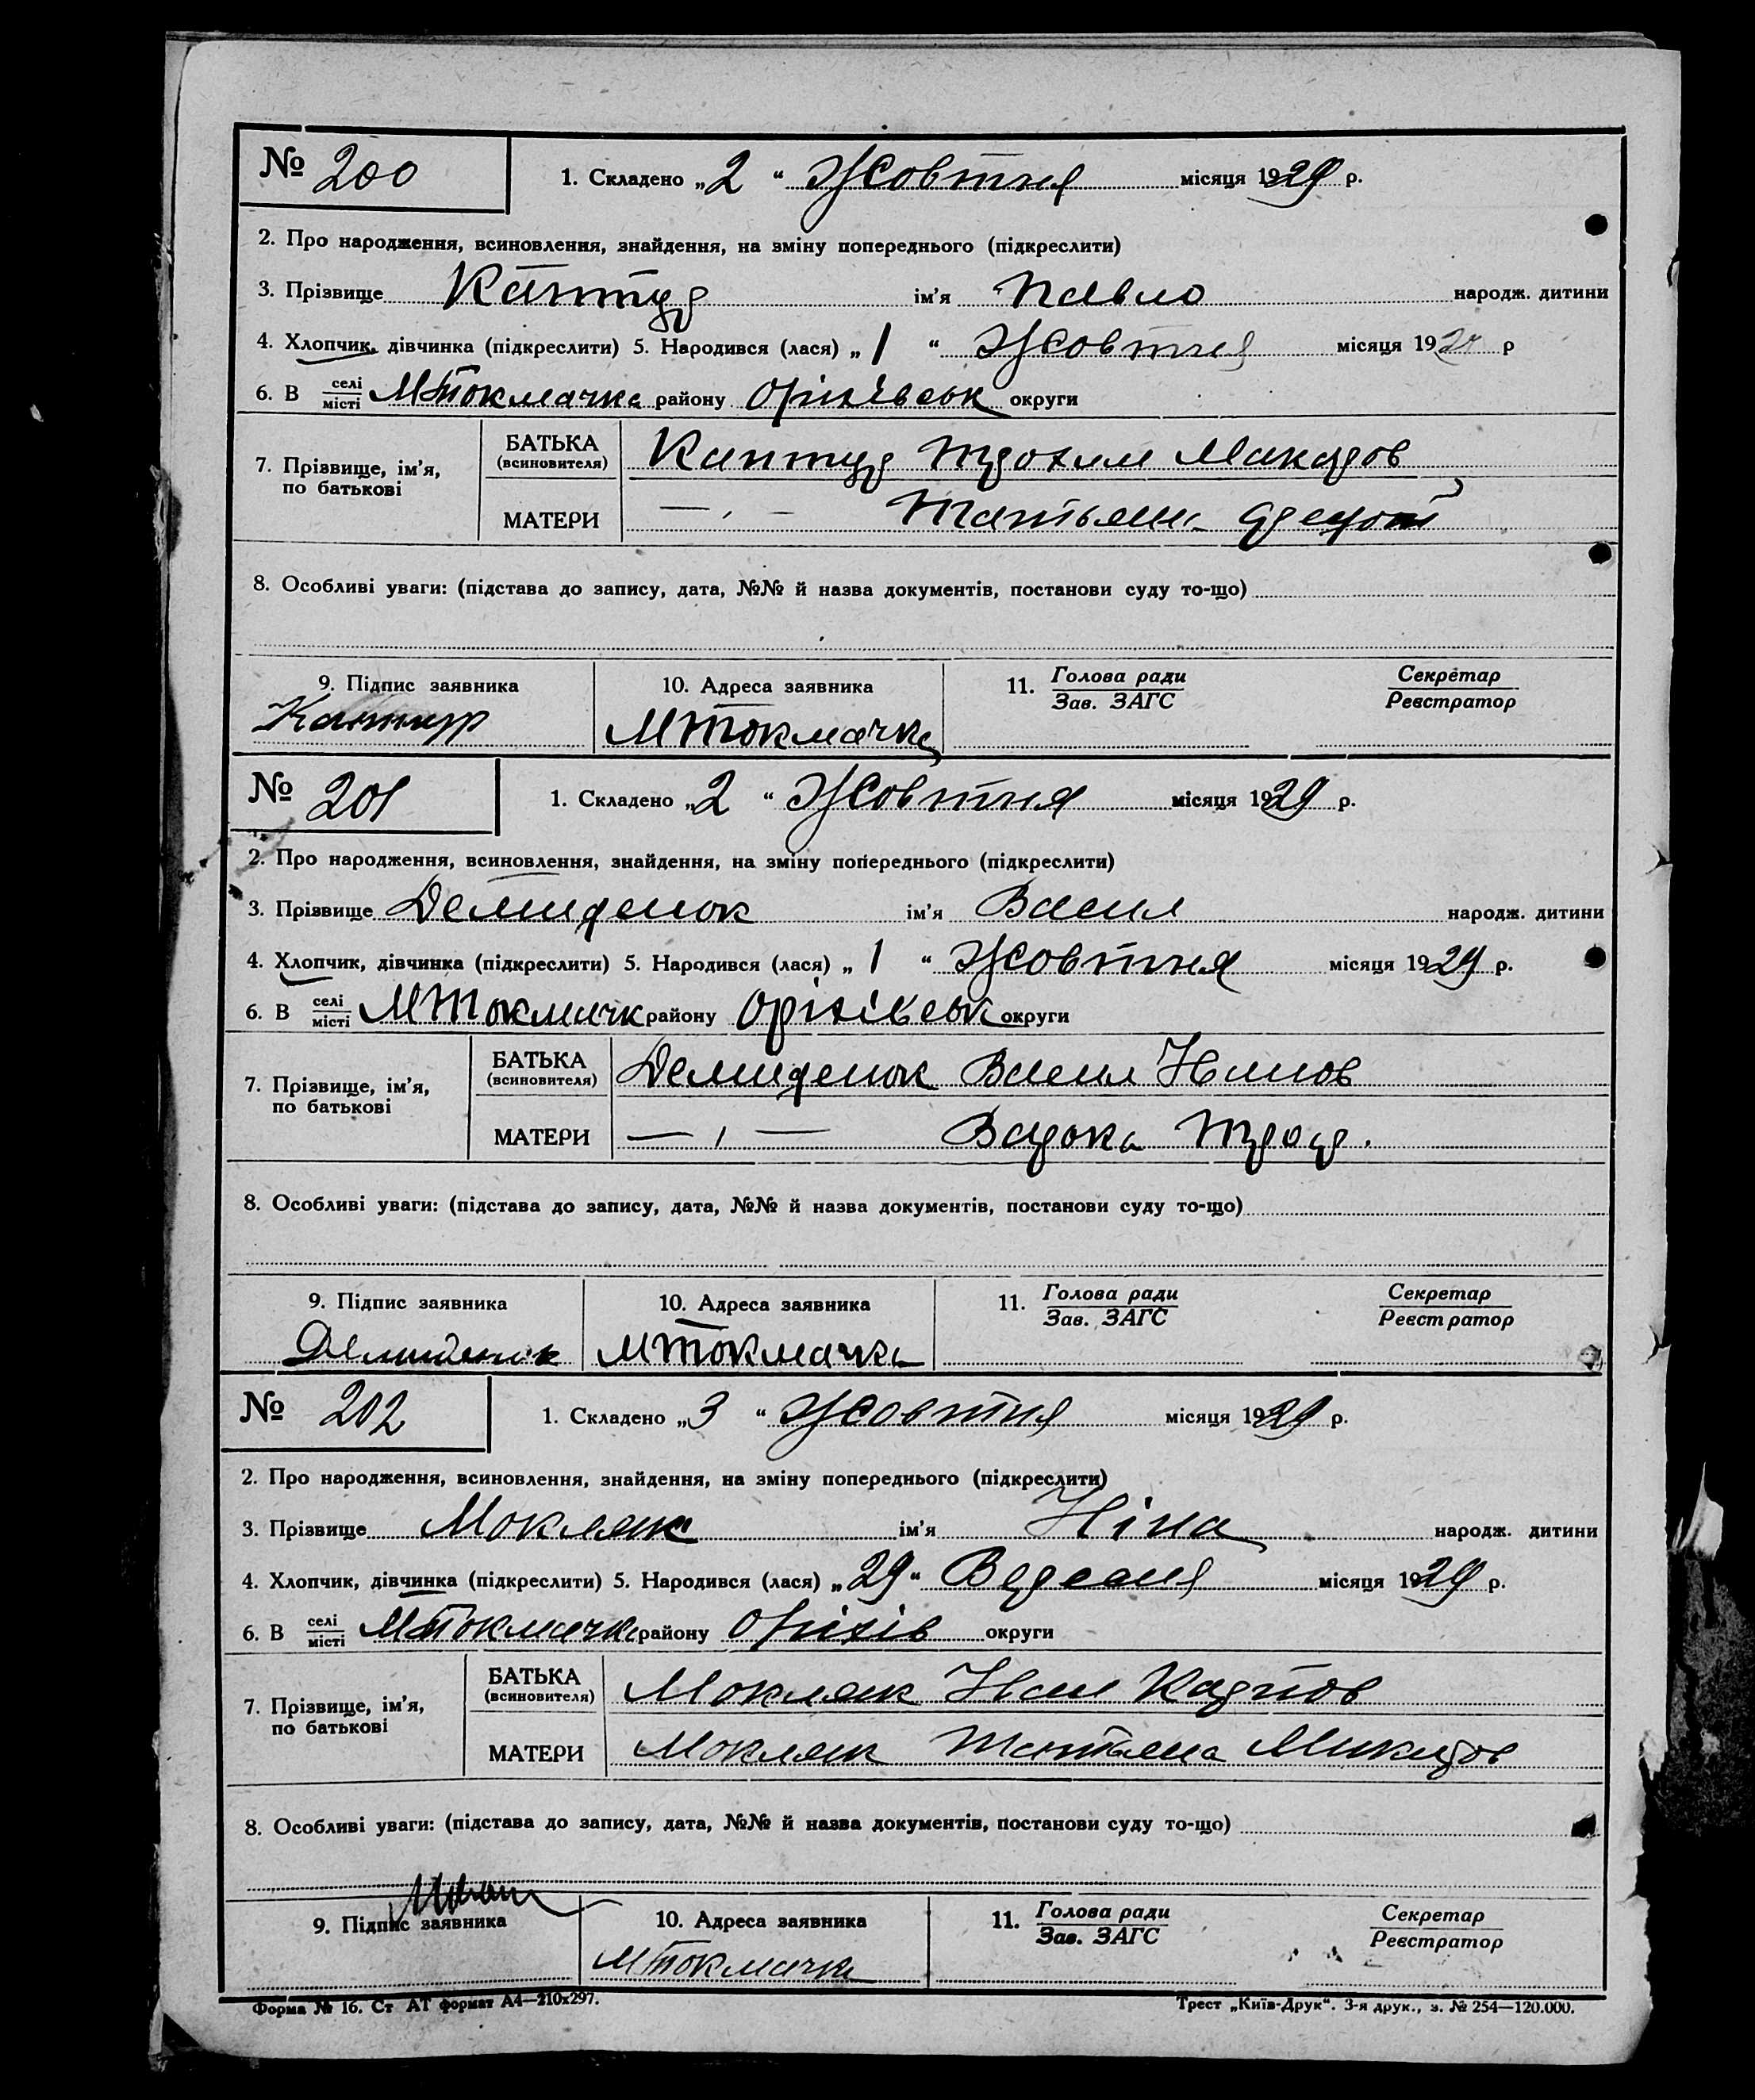 № 200 1. Складено „2“ Жовтня місяця 1929 р.
2. Про народження, всиновлення, знайдення, на зміну попереднього (підкреслити)
3. Прізвище Каптур ім'я Павло народж. дитини
4. Хлопчик, дівчинка (підкреслити) 5. Народився (лася) „1“ Жовтня місяця 1929 р
6. В селі місті МТокмачка району Оріхівськ округи
7. Прізвище, ім'я, по батькові
БАТЬКА (всиновителя) Каптур Трохим Макаров
МАТЕРИ —,— Татьяна
8. Особливі уваги: (підстава до запису, дата, №№ й назва документів, постанови суду то-що)
9. Підпис заявника 10. Адреса заявника 11. Голова ради Зав. ЗАГС Секретар Реєстратор
Каптур МТокмачка
№ 201 1. Складено „2“ Жовтня місяця 1929 р.
2. Про народження, всиновлення, знайдення, на зміну попереднього (підкреслити)
3. Прізвище Демиденок ім'я Васил народж. дитини
4. Хлопчик, дівчинка (підкреслити) 5. Народився (лася) „1“ Жовтня місяця 1929 р.
6. В селі місті МТокмачк району Оріхівськ округи
7. Прізвище, ім'я, по батькові
БАТЬКА (всиновителя) Демиденок Васил Иванов
МАТЕРИ —,— Варка
8. Особливі уваги: (підстава до запису, дата, №№ й назва документів, постанови суду то-що)
9. Підпис заявника 10. Адреса заявника 11. Голова ради Зав. ЗАГС Секретар Реєстратор
Демиденок МТокмачка
№ 202 1. Складено „3“ Жовтня місяця 1929 р.
2. Про народження, всиновлення, знайдення, на зміну попереднього (підкреслити)
3. Прізвище Мокляк ім'я Ніна народж. дитини
4. Хлопчик, дівчинка (підкреслити) 5. Народився (лася) „29“ Вересня місяця 1929 р.
6. В селі місті МТокмачка району Оріхів округи
7. Прізвище, ім'я, по батькові
БАТЬКА (всиновителя) Мокляк Иван Карпов
МАТЕРИ Мокляк Татьяна
8. Особливі уваги: (підстава до запису, дата, №№ й назва документів, постанови суду то-що)
9. Підпис заявника 10. Адреса заявника 11. Голова ради Зав. ЗАГС Секретар Реєстратор
МТокмачка
Форма № 16. Ст АТ формат А4—210x297. Трест „Київ-Друк“. 3-я друк., з. № 254—120.000.